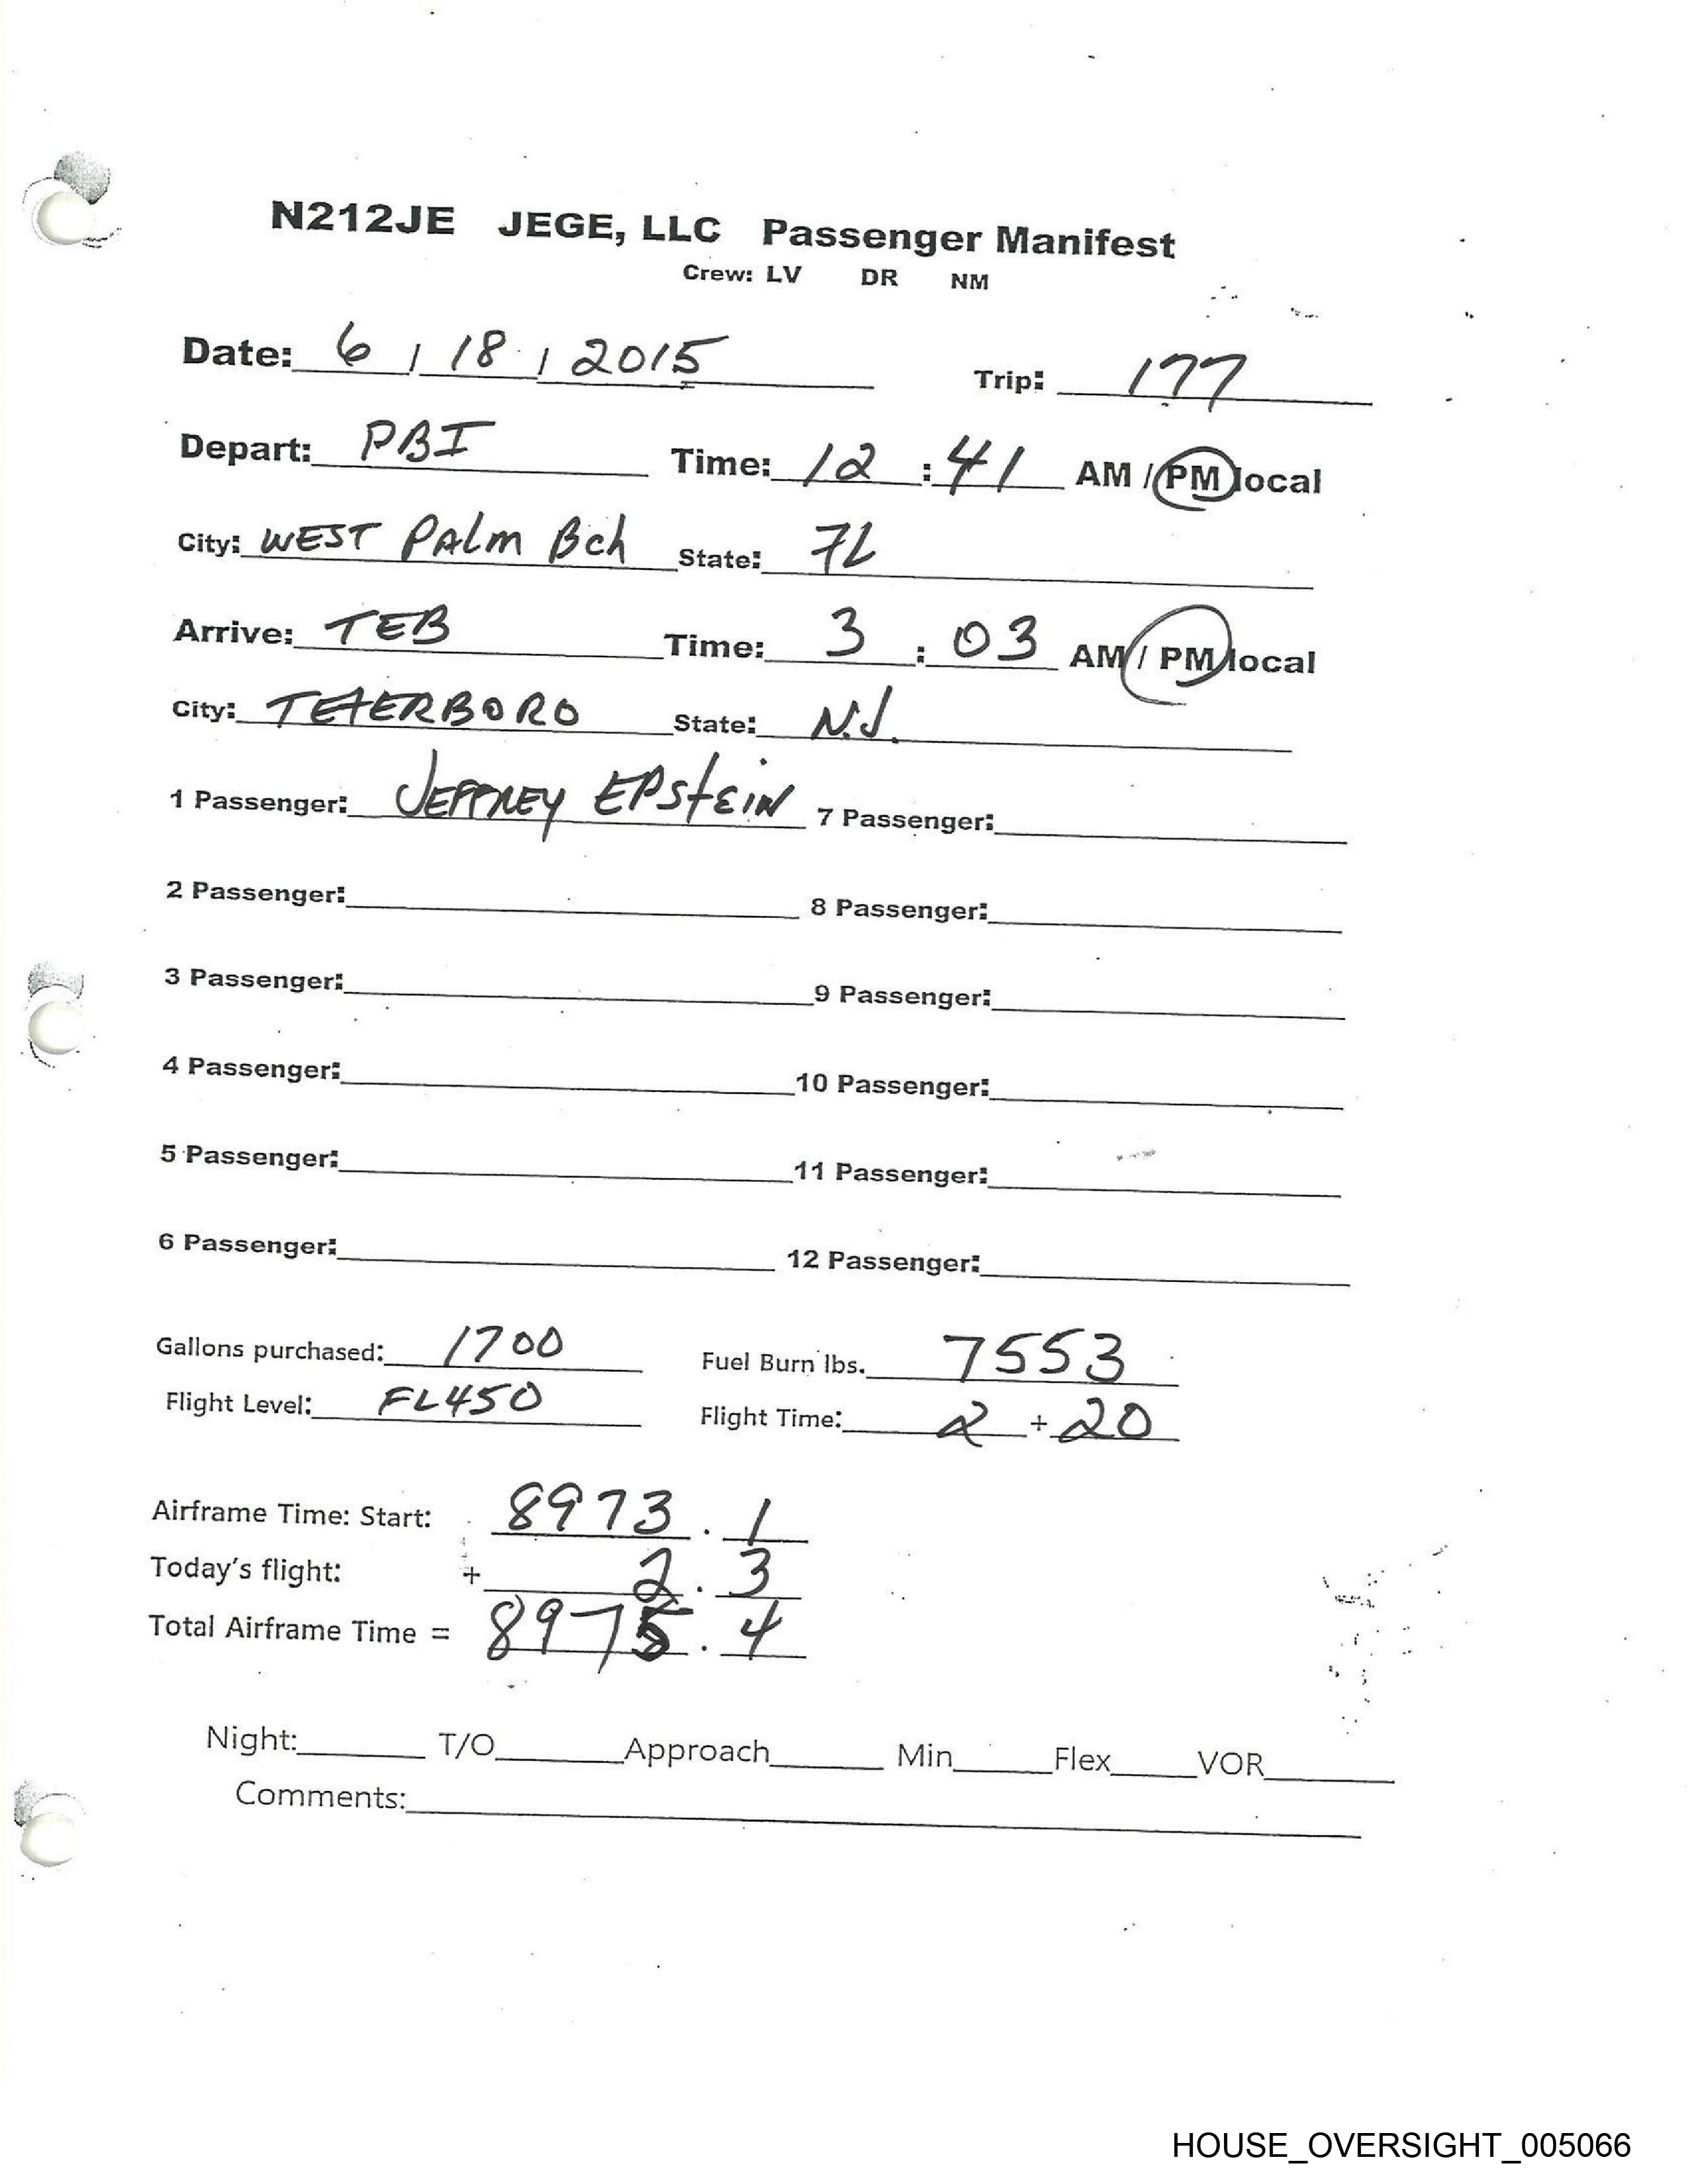 N212JE JEGE, LLC Passenger Manifest
Crew: LV DR NM
Date: 6 / 18 / 2015 Trip: 177
Depart: PBI Time: 12 : 41 AM / PM local
City: WEST PALM Bch State: FL
Arrive: TEB Time: 3 : 03 AM / PM local
City: TETERBORO State: N.J.
1 Passenger: JEFFREY EPSTEIN 7 Passenger:
2 Passenger: 8 Passenger:
3 Passenger: 9 Passenger:
4 Passenger: 10 Passenger:
5 Passenger: 11 Passenger:
6 Passenger: 12 Passenger:
Gallons purchased: 1700 Fuel Burn lbs. 7553
Flight Level: FL450 Flight Time: 2 + 20
Airframe Time: Start: 8973 . 1
Today's flight: + 2 . 3
Total Airframe Time = 8975 . 4
Night: T/O Approach Min Flex VOR
Comments:
HOUSE_OVERSIGHT_005066